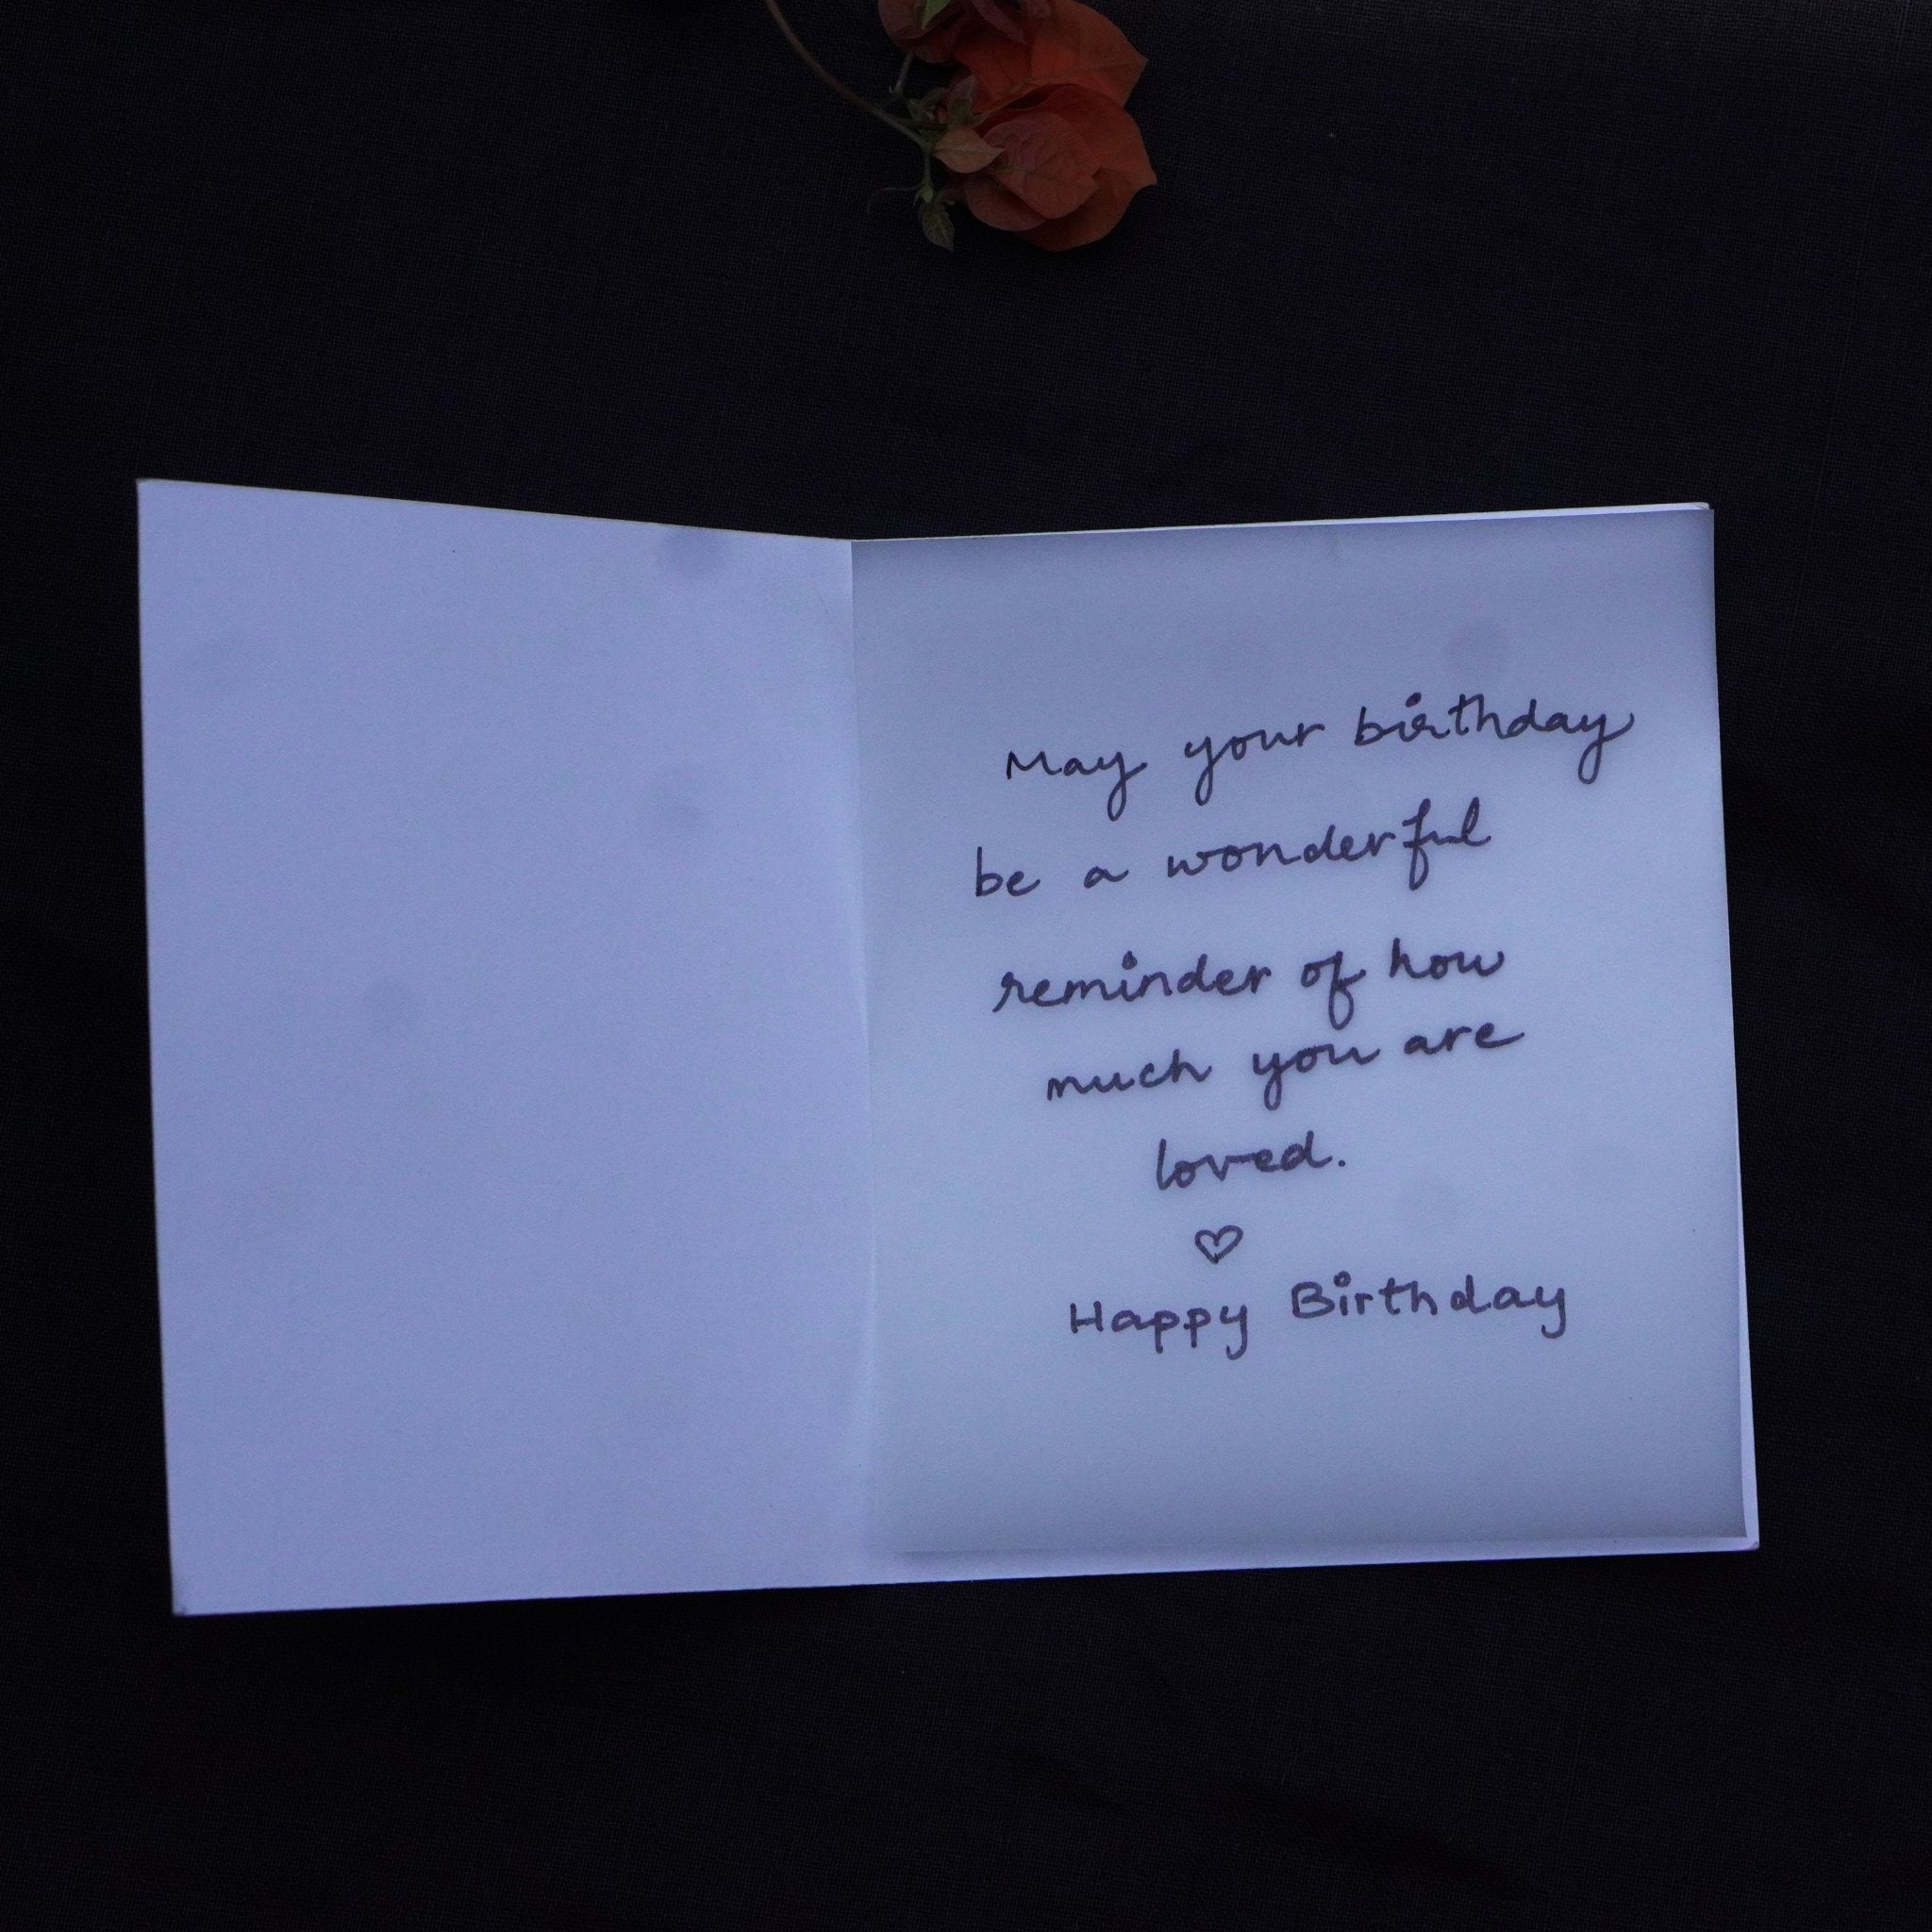 May your birthday
be a wonderful
reminder of how
much you are
loved.
♡
Happy Birthday